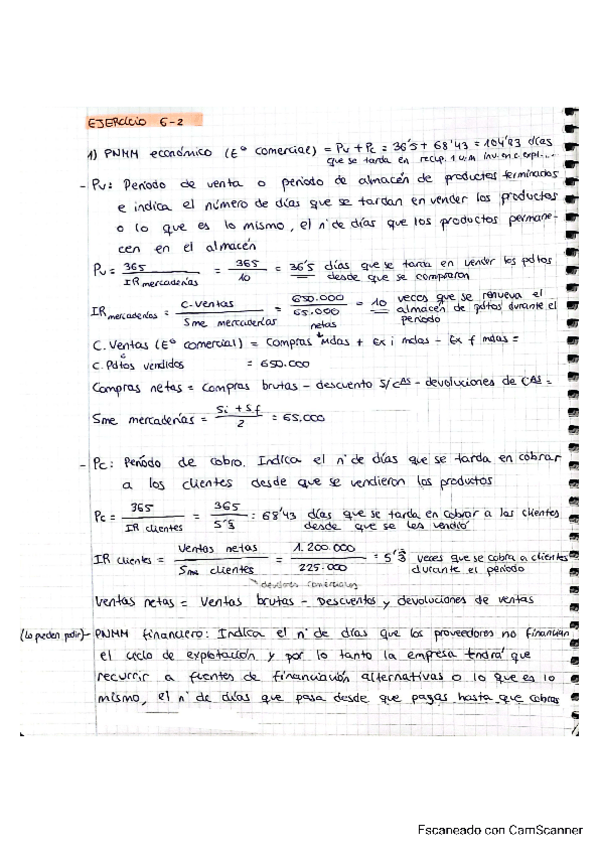 EJERCICIO 6-2
1) PNMM económico (Eª comercial) = Pv + Pc = 36'5 + 68'43 = 104'93 días
que se tarda en recup. 1 u.m inv. en c. expl...
- Pv: Periodo de venta o periodo de almacén de productos terminados
e indica el número de días que se tardan en vender los productos
o lo que es lo mismo, el nº de días que los productos permane-
cen en el almacén
Pv = 365 / IR mercaderías = 365 / 10 = 36'5 días que se tarda en vender los pdtos
desde que se compraron
IR mercaderías = C. ventas / Sme mercaderías = 650.000 / 65.000 = 10 veces que se renueva el
almacén de pdtos durante el
periodo
netas
C. Ventas (Eª comercial) = compras mdas + Ex i mdas - Ex f mdas =
ó
C. Pdtos vendidos = 650.000
Compras netas = compras brutas - descuento s/cas - devoluciones de cas =
Sme mercaderías = Si + Sf / 2 = 65.000
- Pc: Periodo de cobro. Indica el nº de días que se tarda en cobrar
a los clientes desde que se vendieron los productos
Pc = 365 / IR clientes = 365 / 5'3 = 68'43 días que se tarda en cobrar a los clientes
desde que se les vendió
IR clientes = Ventas netas / Sme clientes = 1.200.000 / 225.000 = 5'3 veces que se cobra a clientes
durante el periodo
deudores comerciales
Ventas netas = Ventas brutas - Descuentos y devoluciones de ventas
(Lo pueden pedir) - PNMM financiero: Indica el nº de días que los proveedores no financian
el ciclo de explotación y por lo tanto la empresa tendrá que
recurrir a fuentes de financiación alternativas o lo que es lo
mismo, el nº de días que pasa desde que pagas hasta que cobras
Escaneado con CamScanner